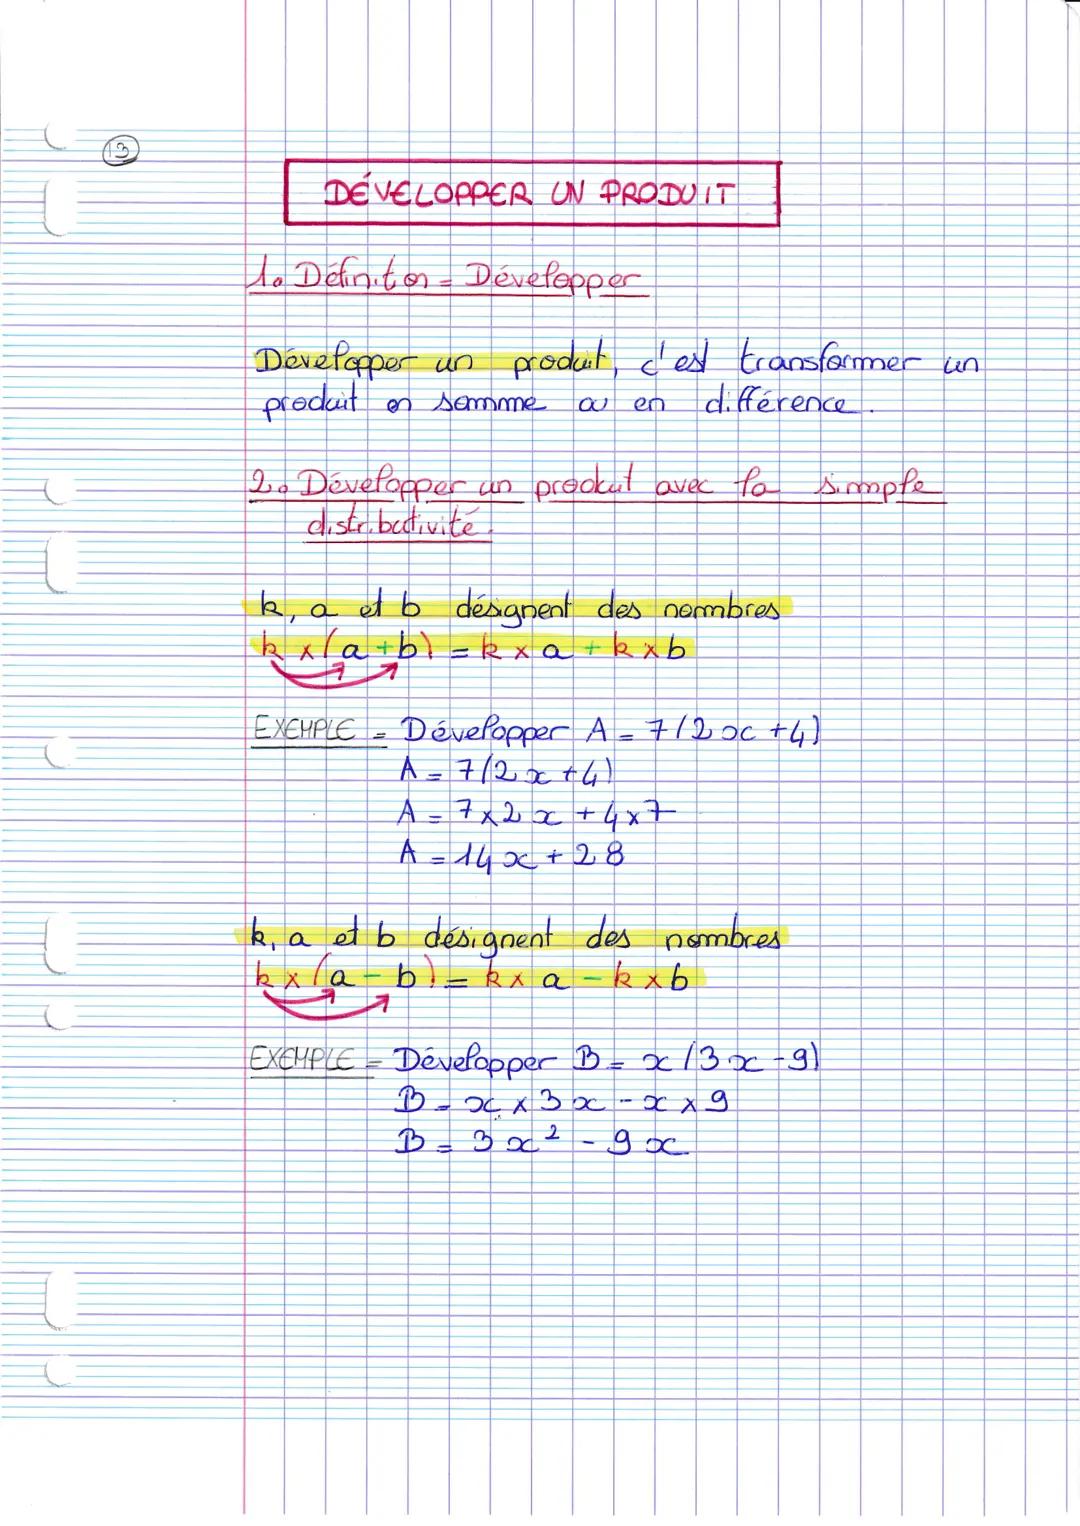 13
DÉVELOPPER UN PRODUIT
1. Définition = Développer
Développer un produit, c'est transformer un
produit en somme ou en différence.
2. Développer un produit avec la simple
distributivité.
k, a et b désignent des nombres
k x (a + b) = k x a + k x b
EXEMPLE = Développer A = 7(2x + 4)
A = 7(2x + 4)
A = 7 x 2x + 4 x 7
A = 14x + 28
k, a et b désignent des nombres
k x (a - b) = k x a - k x b
EXEMPLE = Développer B = x(3x - 9)
B = x x 3x - x x 9
B = 3x² - 9x